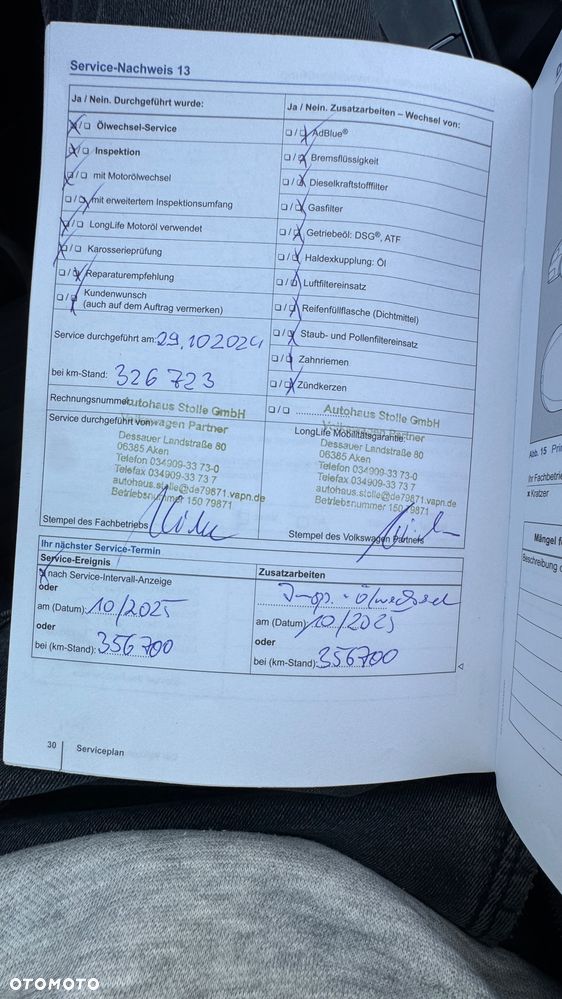 Service-Nachweis 13
Ja / Nein. Durchgeführt wurde:
❑/❑ Ölwechsel-Service
❑/❑ Inspektion
❑/❑ mit Motorölwechsel
❑/❑ mit erweitertem Inspektionsumfang
❑/❑ LongLife Motoröl verwendet
❑/❑ Karosserieprüfung
❑/❑ Reparaturempfehlung
❑/❑ Kundenwunsch
(auch auf dem Auftrag vermerken)
Service durchgeführt am: 29.10.2024
bei km-Stand: 326 723
Rechnungsnummer:
Service durchgeführt von:
Autohaus Stolle GmbH
Volkswagen Partner
Dessauer Landstraße 80
06385 Aken
Telefon 034909-33 73-0
Telefax 034909-33 73 7
autohaus.stolle@de79871.vapn.de
Betriebsnummer 150 79871
Stempel des Fachbetriebs
Ja / Nein. Zusatzarbeiten – Wechsel von:
❑/❑ AdBlue®
❑/❑ Bremsflüssigkeit
❑/❑ Dieselkraftstofffilter
❑/❑ Gasfilter
❑/❑ Getriebeöl: DSG®, ATF
❑/❑ Haldexkupplung: Öl
❑/❑ Luftfiltereinsatz
❑/❑ Reifenfüllflasche (Dichtmittel)
❑/❑ Staub- und Pollenfiltereinsatz
❑/❑ Zahnriemen
❑/❑ Zündkerzen
❑/❑
LongLife Mobilitätsgarantie:
Autohaus Stolle GmbH
Volkswagen Partner
Dessauer Landstraße 80
06385 Aken
Telefon 034909-33 73-0
Telefax 034909-33 73 7
autohaus.stolle@de79871.vapn.de
Betriebsnummer 150 79871
Stempel des Volkswagen Partners
Ihr nächster Service-Termin
Service-Ereignis
nach Service-Intervall-Anzeige
oder
am (Datum): 10/2025
oder
bei (km-Stand): 356 700
Zusatzarbeiten
Insp. + Ölwechsel
am (Datum): 10/2025
oder
bei (km-Stand): 356700
30
Serviceplan
Abb. 15
Ihr Fachbetrie
x Kratzer
Mängel f
Beschreibung d
OTOMOTO